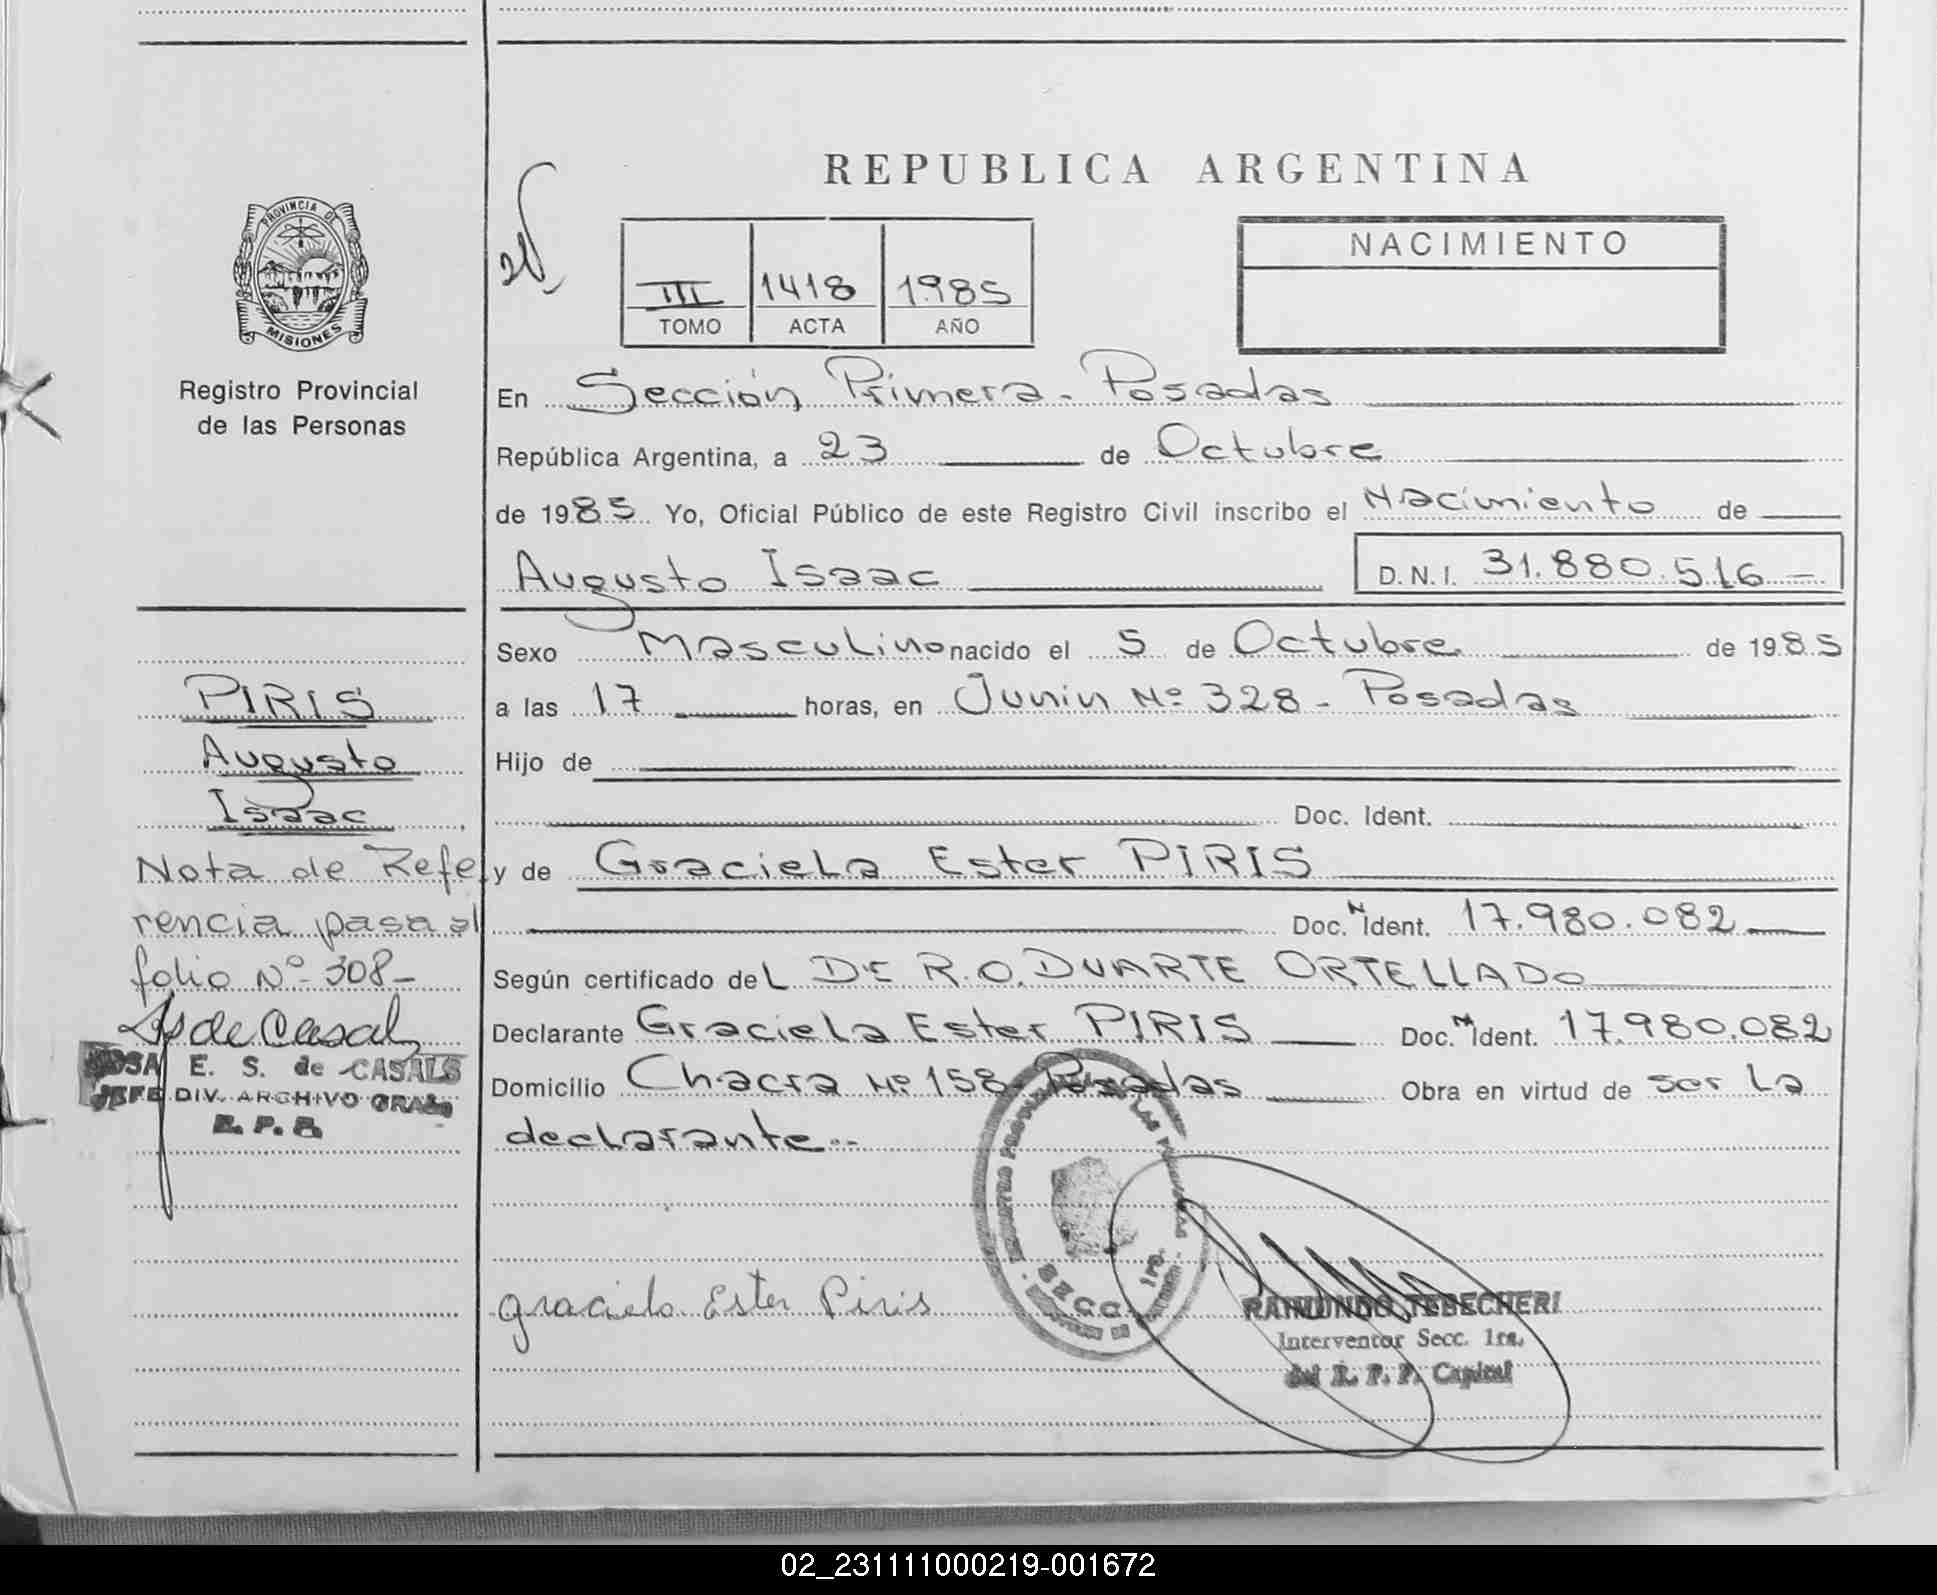 REPUBLICA ARGENTINA
PROVINCIA DE
MISIONES
Registro Provincial
de las Personas
III 1418 1985
TOMO ACTA AÑO
NACIMIENTO
En Sección Primera - Posadas
República Argentina, a 23 de Octubre
de 1985 Yo, Oficial Público de este Registro Civil inscribo el Nacimiento de
Augusto Isaac D.N.I. 31.880.516 -
Sexo Masculino nacido el 5 de Octubre de 1985
a las 17 horas, en Junin Nº 328 - Posadas
Hijo de
Doc. Ident.
y de Graciela Ester PIRIS
Doc. N Ident. 17.980.082
Según certificado del DE R.O. DUARTE ORTELLADO
Declarante Graciela Ester PIRIS Doc. N Ident. 17.980.082
Domicilio Chacra Nº 158 - Posadas Obra en virtud de ser la
declarante..
PIRIS
Augusto
Isaac
Nota de Refe
rencia pasa al
folio Nº 308 -
de Casals
E. S. de CASALS
JEFE DIV. ARCHIVO GRAL.
R. P. P.
graciela Ester Piris
SECC. 1ra.
RAIMUNDO TEBECHERI
Interventor Secc. 1ra.
del R. P. P. Capital
02_231111000219-001672